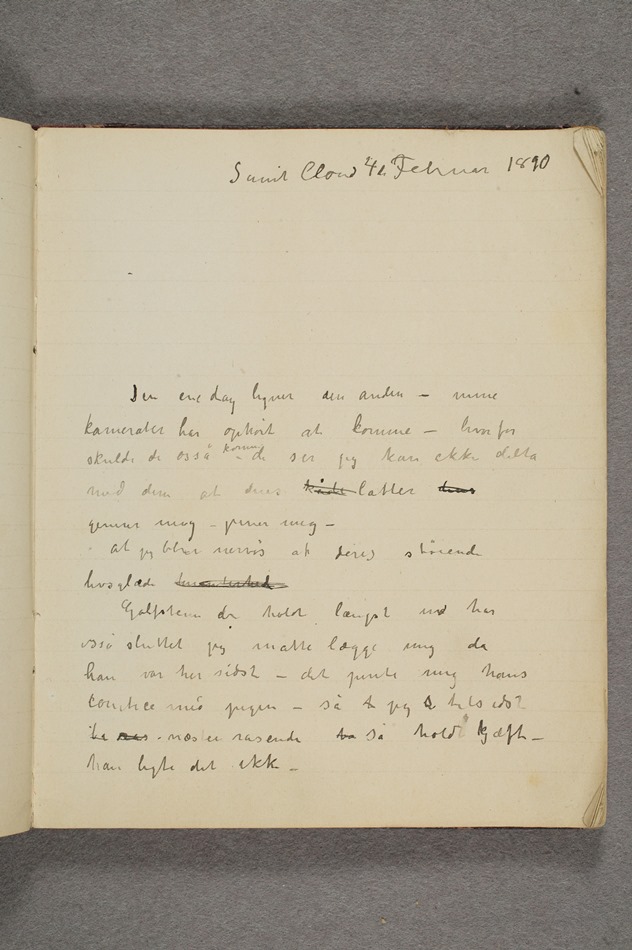 Saint Cloud 4de Februar 1890
Den ene dag ligner den anden – mine
kamerater har ophört at komme – hvorfor
skulde de også komme – de ser jeg kan ikke delta
med dem at deres kåde latter
generer mig – piner mig –
at jeg blir nervös af deres störende
livsglæde
holdt længst ud har
også sluttet jeg måtte lægge mig da
han var her sidst – det pinte mig hans
med pigen – så jeg tilsidst
næsten rasende så hold kjæft –
han ligte det ikke –